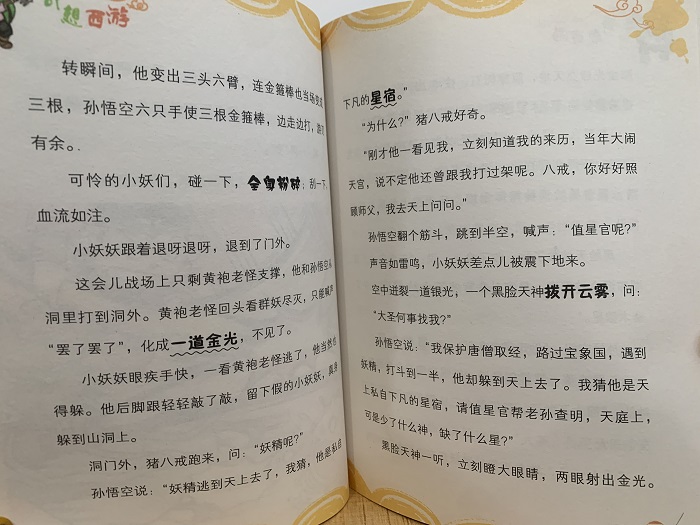 想西游
转瞬间，他变出三头六臂，连金箍棒也当场变成
三根，孙悟空六只手使三根金箍棒，边走边打，游刃
有余。
可怜的小妖们，碰一下，全身粉碎；刮一下，
血流如注。
小妖妖跟着退呀退呀，退到了门外。
这会儿战场上只剩黄袍老怪支撑，他和孙悟空从
洞里打到洞外。黄袍老怪回头看群妖尽灭，只能喊声
“罢了罢了”，化成一道金光，不见了。
小妖妖眼疾手快，一看黄袍老怪逃了，他当然也
得躲。他后脚跟轻轻敲了敲，留下假的小妖妖，真身
躲到山洞上。
洞门外，猪八戒跑来，问：“妖精呢？”
孙悟空说：“妖精逃到天上去了，我猜，他是私自
下凡的星宿。”
“为什么？”猪八戒好奇。
“刚才他一看见我，立刻知道我的来历，当年大闹
天宫，说不定他还曾跟我打过架呢。八戒，你好好照
顾师父，我去天上问问。”
孙悟空翻个筋斗，跳到半空，喊声：“值星官呢？”
声音如雷鸣，小妖妖差点儿被震下地来。
空中迸裂一道银光，一个黑脸天神拨开云雾，问：
“大圣何事找我？”
孙悟空说：“我保护唐僧取经，路过宝象国，遇到
妖精，打斗到一半，他却躲到天上去了。我猜他是天
上私自下凡的星宿，请值星官帮老孙查明，天庭上，
可是少了什么神，缺了什么星？”
黑脸天神一听，立刻瞪大眼睛，两眼射出金光。